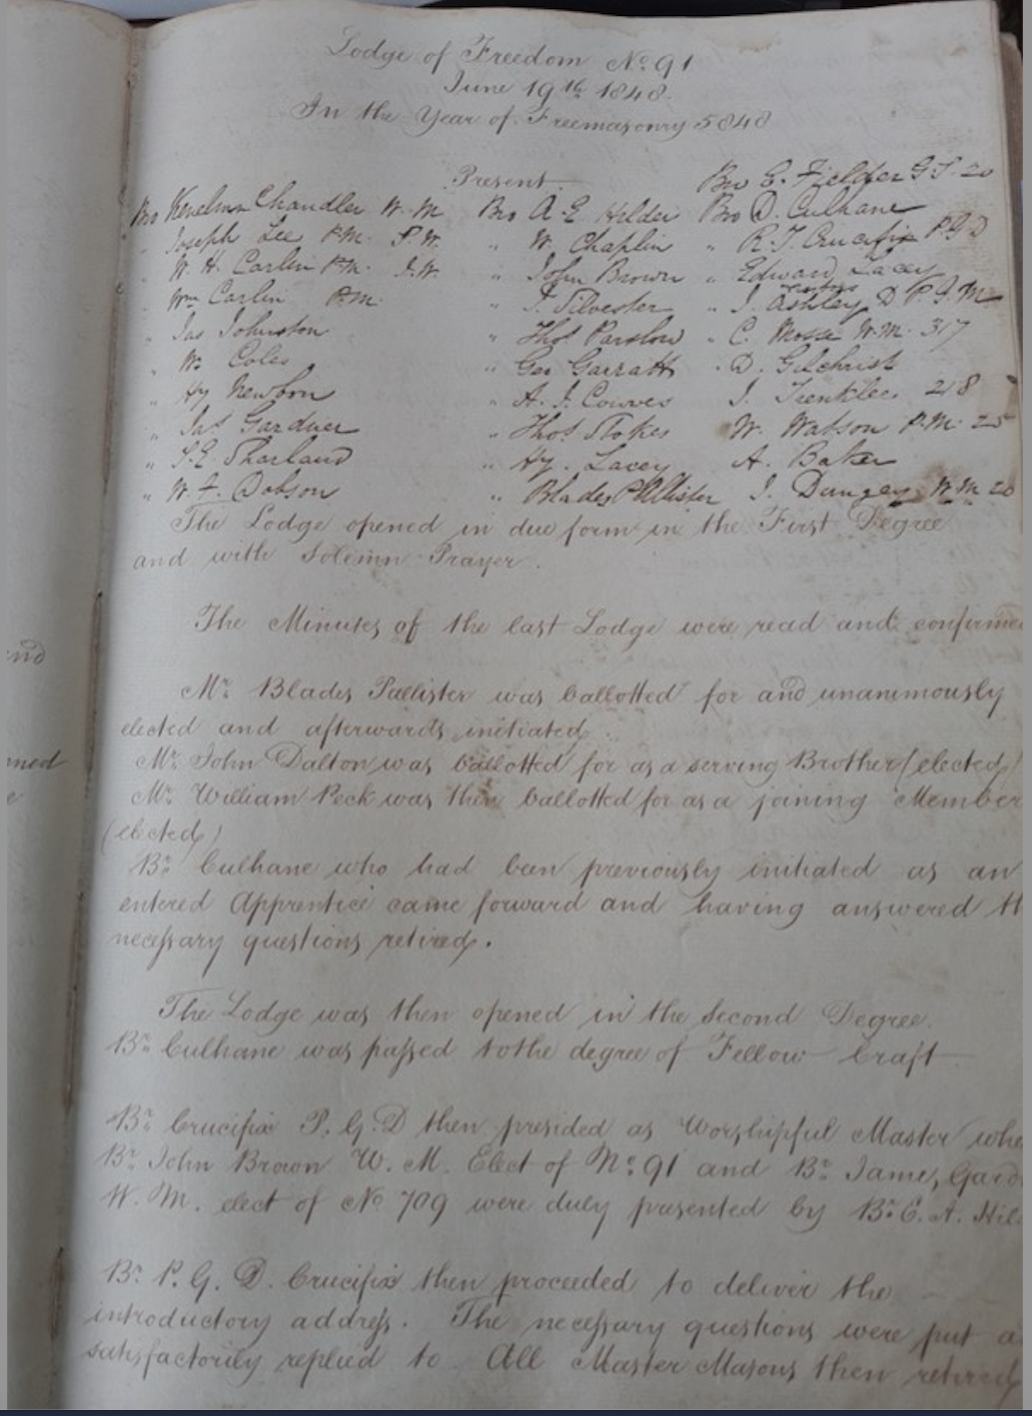 Lodge of Freedom No. 91
June 19th 1848.
In the Year of Freemasonry 5848
Present
Bro E. Fielder G S. 20
Bro Kenelm Chandler W. M Bro A E Hilder Bro D. Culhane
" Joseph Lee P.M. S.W. " W. Chaplin " R. T. Crucefix P.G.D
" W. H. Carlin P.M. J.W. " John Brown " Edward Lacey
" Wm Carlin P.M. " T. Silvester " J. Ashley D P.G.M
" Jas Johnston " Thos Parslow " C. Mosse W.M. 317
" W. Coles " Geo Garratt " D. Gilchrist
" Hy Newbon " A. J. Cowves J. Trenklee 218
" Jas Gardner " Thos Stokes W. Watson P.M. 25
" S. E. Sharland " Hy. Lacey A. Baker
" W. F. Dobson " Blades Pallister J. Dangey W.M. 20
The Lodge opened in due form in the First Degree
and with Solemn Prayer.
The Minutes of the last Lodge were read and confirme
Mr. Blades Pallister was ballotted for and unanimously
elected and afterwards initiated.
Mr. John Dalton was ballotted for as a serving Brother (elected)
Mr. William Peck was then ballotted for as a joining Member
(elected)
Br. Culhane who had been previously initiated as an
entered Apprentice came forward and having answered th
necessary questions retired.
The Lodge was then opened in the Second Degree.
Br. Culhane was passed to the degree of Fellow Craft
Br. Crucifix P. G. D then presided as Worshipful Master whe
Br. John Brown W. M. Elect of No. 91 and Br. James Gard
W. M. elect of No 709 were duly presented by Br. E. A. Hil
Br. P. G. D. Crucifix then proceeded to deliver the
introductory address. The necessary questions were put a
satisfactorily replied to. All Master Masons then retired